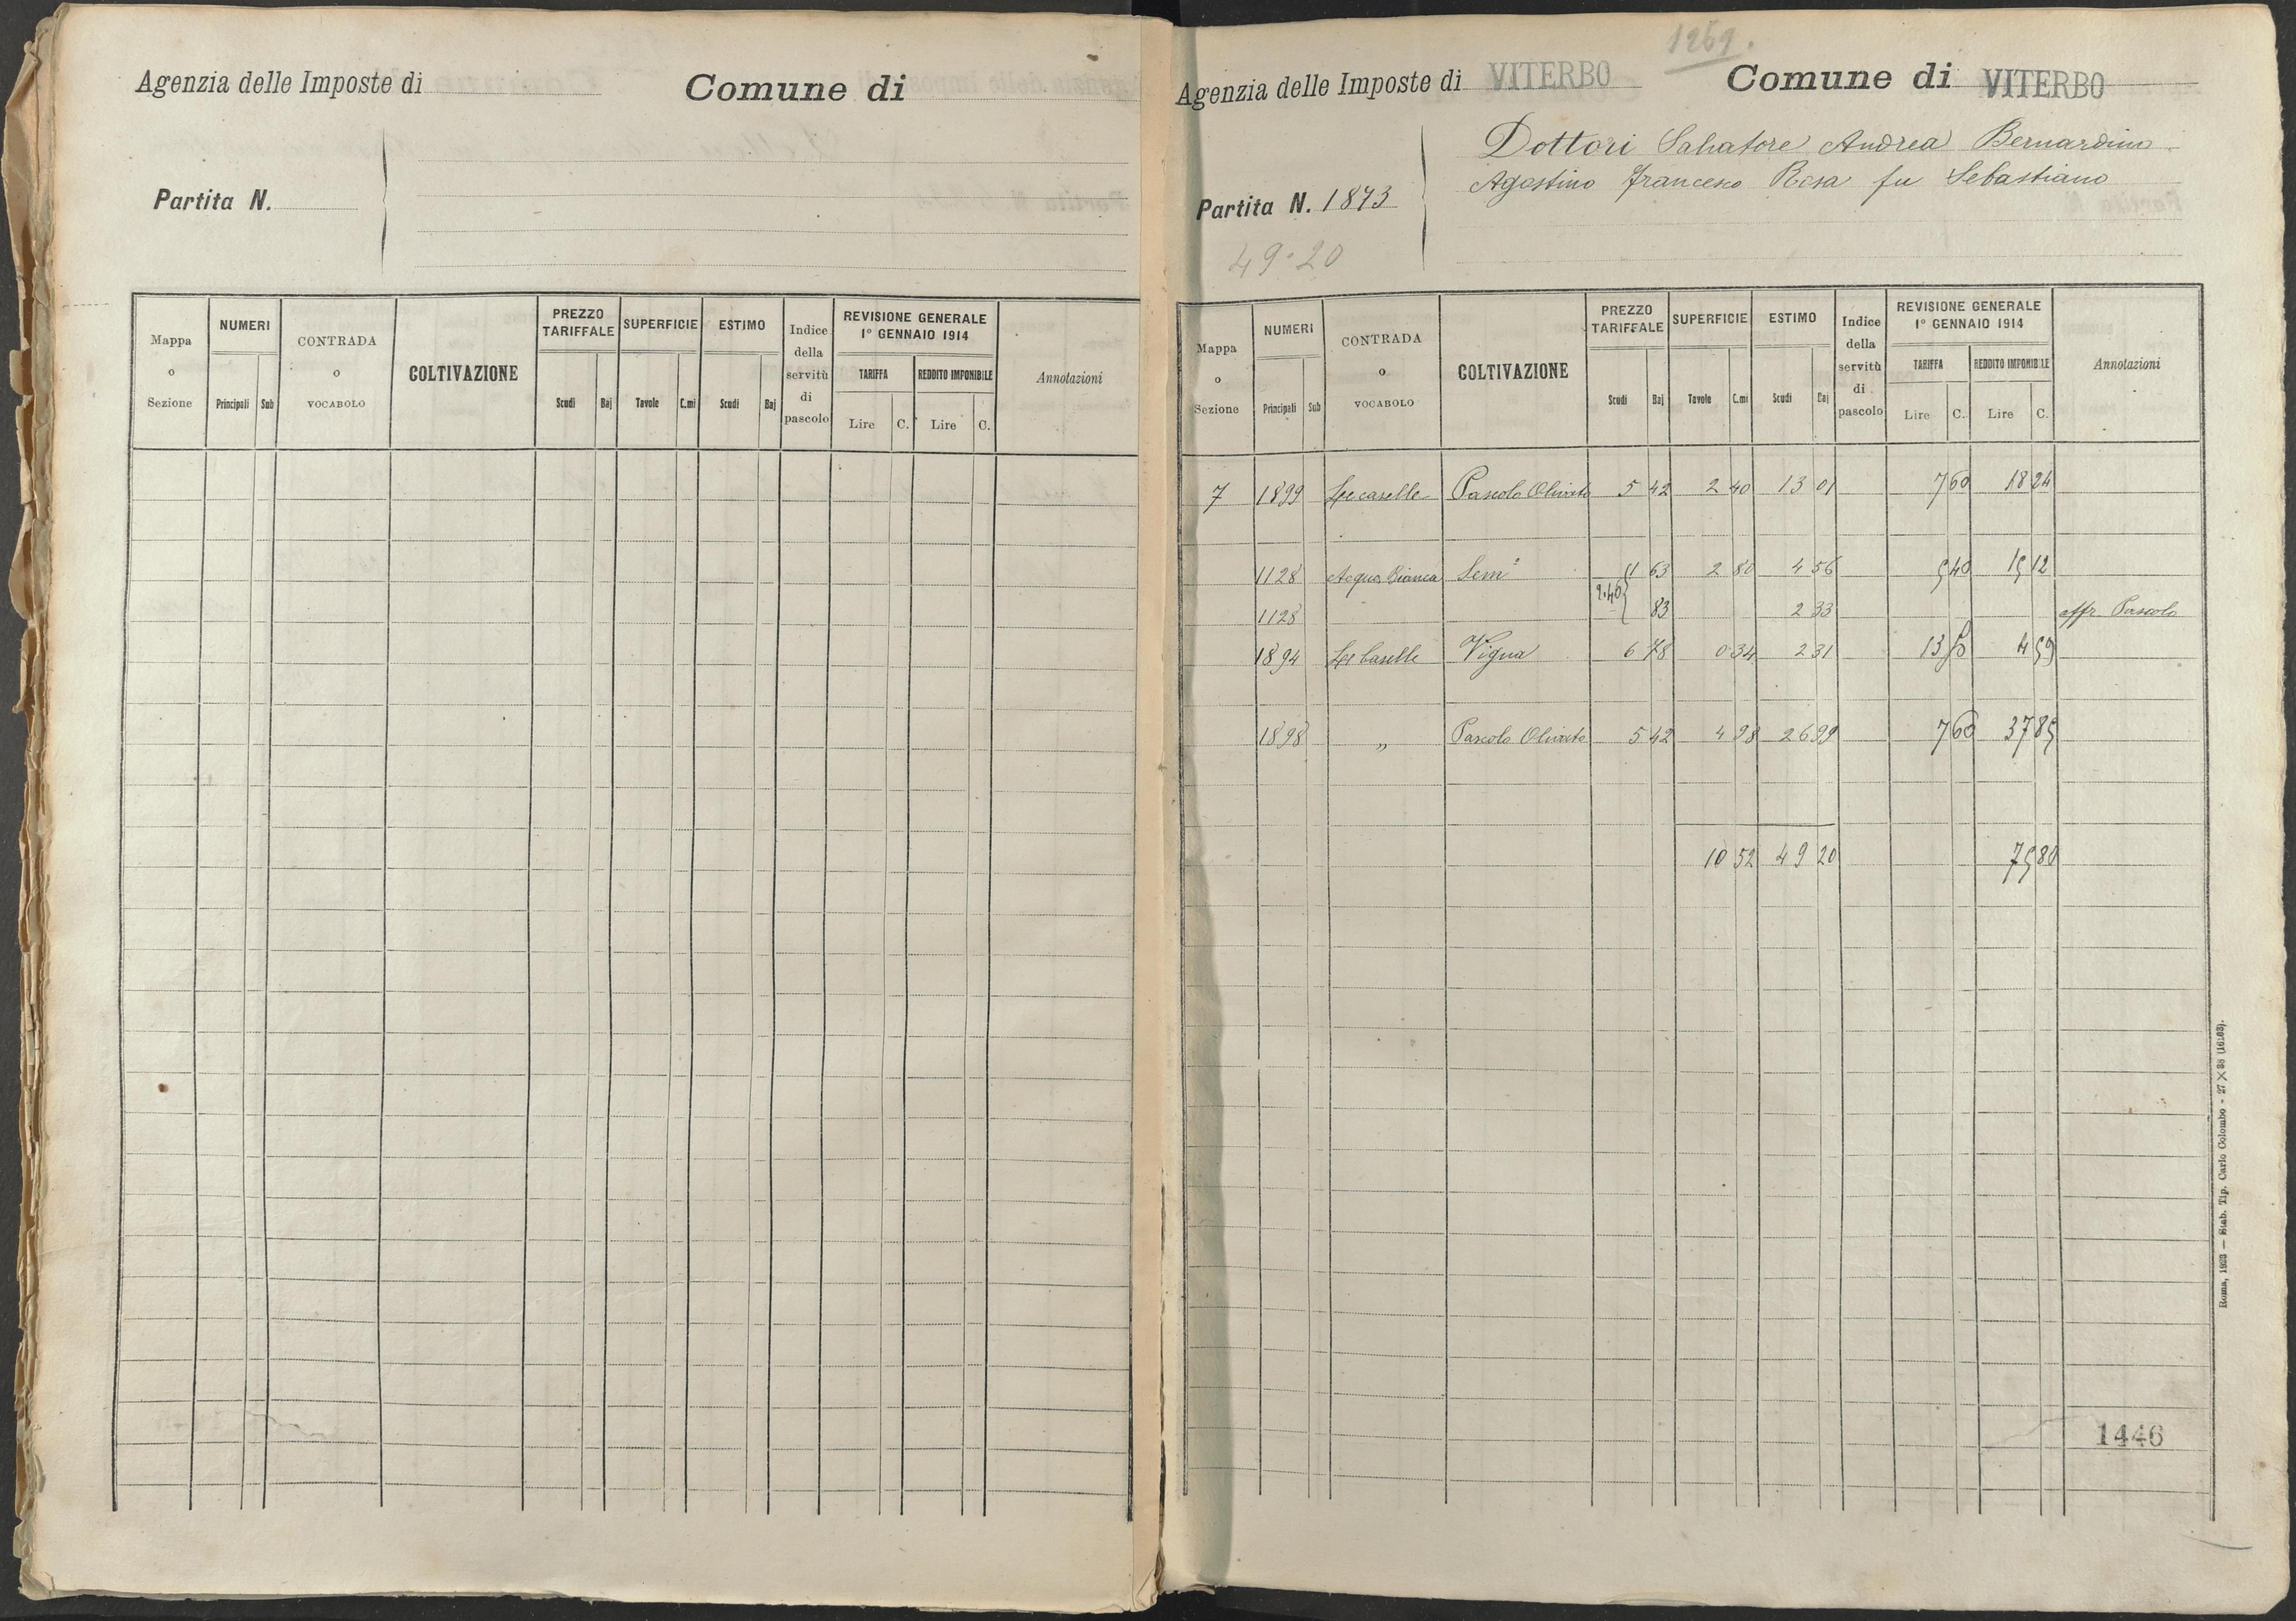 Agenzia delle Imposte di
Comune di
Partita N.
Mappa o Sezione
NUMERI
Principali Sub
CONTRADA o VOCABOLO
COLTIVAZIONE
PREZZO TARIFFALE
Scudi Baj
SUPERFICIE
Tavole C.mi
ESTIMO
Scudi Baj
Indice della servitù di pascolo
REVISIONE GENERALE
1º GENNAIO 1914
TARIFFA
Lire C.
REDDITO IMPONIBILE
Lire C.
Annotazioni
1269.
Agenzia delle Imposte di VITERBO
Comune di VITERBO
Dottori Salvatore Andrea Bernardino
Agostino Francesco Rosa fu Sebastiano
Partita N. 1873
49.20
Mappa o Sezione
NUMERI
Principali Sub
CONTRADA o VOCABOLO
COLTIVAZIONE
PREZZO TARIFFALE
Scudi Baj
SUPERFICIE
Tavole C.mi
ESTIMO
Scudi Baj
Indice della servitù di pascolo
REVISIONE GENERALE
1º GENNAIO 1914
TARIFFA
Lire C.
REDDITO IMPONIBILE
Lire C.
Annotazioni
7 1899 Le caselle Pascolo Olivato 5 42 2 40 13 01 7 60 18 24
1128 Acqua Bianca Semº 1 63 2 80 4 56 5 40 15 12
2.46
1128 83 2 33 affr. Pascolo
1894 Le Caselle Vigna 6 78 0 34 2 31 13 50 4 59
1898 „ Pascolo Olivato 5 42 4 98 26 99 7 60 37 85
10 52 49 20 75 80
Roma, 1923 — Stab. Tip. Carlo Colombo - 27 X 38 (16163).
1446